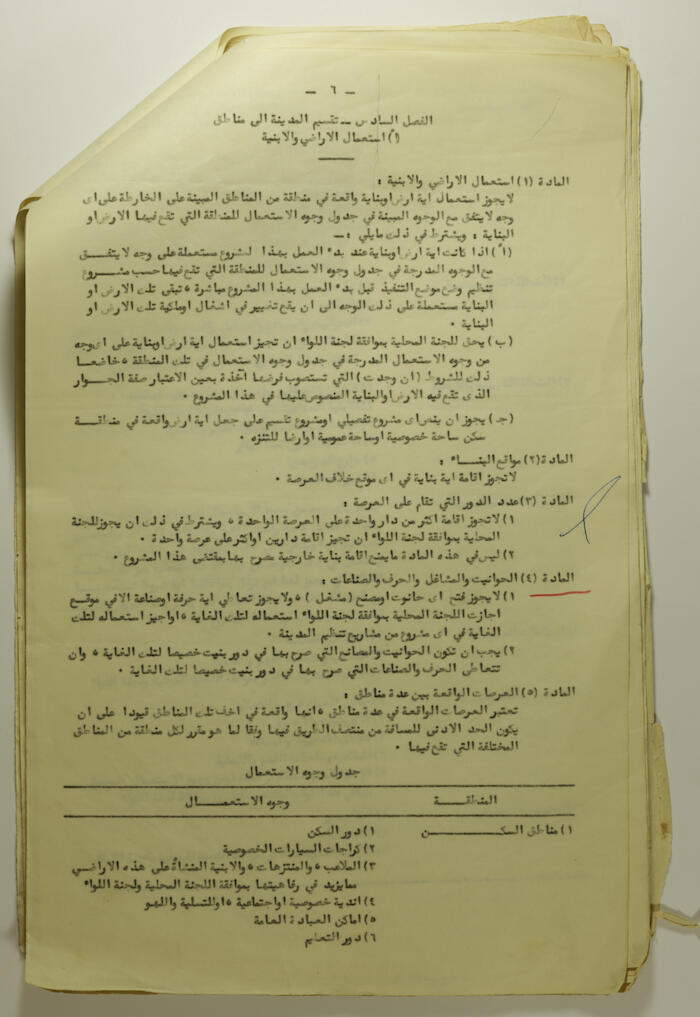 — ٦ —
الفصل السادس — تقسيم المدينة الى مناطق
(أ) استعمال الاراضي والابنية
المادة (١) استعمال الاراضي والابنية :
لا يجوز استعمال اية ارض او بناية واقعة في منطقة من المناطق المبينة على الخارطة على اى
وجه لا يتفق مع الوجوه المبينة في جدول وجوه الاستعمال للمنطقة التي تقع فيها الارض او
البناية : ويشترط في ذلك مايلي : —
(أ) اذا كانت اية ارض او بناية عند بدء العمل بهذا المشروع مستعملة على وجه لا يتفــق
مع الوجوه المدرجة في جدول وجوه الاستعمال للمنطقة التي تقع فيها حسب مشــروع
تنظيم وضع موضع التنفيذ قبل بدء العمل بهذا المشروع مباشرة ، تبقى تلك الارض او
البناية مستعملة على ذلك الوجه الى ان يقع تغيير في اشغال او ملكية تلك الارض او
البناية .
(ب) يحق للجنة المحلية بموافقة لجنة اللواء ان تجيز استعمال اية ارض او بناية على اى وجه
من وجوه الاستعمال المدرجة في جدول وجوه الاستعمال في تلك المنطقة ، خاضعــا
ذلك للشروط (ان وجدت) التي تستصوب فرضها آخذة بعين الاعتبار صفة الجــوار
الذى تقع فيه الارض او البناية المنصوص عليها في هذا المشروع .
(جـ) يجوز ان ينص اى مشروع تفصيلي او مشروع تقسيم على جعل اية ارض واقعة في منطقــة
سكن ساحة خصوصية او ساحة عمومية او ارضا للتنزه .
المادة (٢) مواقع البنــاء :
لا تجوز اقامة اية بناية في اى موقع خلاف العرصة .
المادة (٣) عدد الدور التي تقام على العرصة :
١) لا تجوز اقامة اكثر من دار واحدة على العرصة الواحدة ، ويشترط في ذلك ان يجوز للجنة
المحلية بموافقة لجنة اللواء ان تجيز اقامة دارين او اكثر على عرصة واحدة .
٢) ليس في هذه المادة ما يمنع اقامة بناية خارجية صرح بها بمقتضى هذا المشروع .
المادة (٤) الحوانيت والمشاغل والحرف والصناعات :
١) لا يجوز فتح اى حانوت او مصنع (مشغل) ، ولا يجوز تعاطي اية حرفة او صناعة الا في موقع
اجازت اللجنة المحلية بموافقة لجنة اللواء استعماله لتلك الغاية ، او اجيز استعماله لتلك
الغاية في اى مشروع من مشاريع تنظيم المدينة .
٢) يجب ان تكون الحوانيت والمصانع التي صرح بها في دور بنيت خصيصا لتلك الغاية ، وان
تتعاطى الحرف والصناعات التي صرح بها في دور بنيت خصيصا لتلك الغاية .
المادة (٥) العرصات الواقعة بين عدة مناطق :
تعتبر العرصات الواقعة في عدة مناطق ، انها واقعة في اخف تلك المناطق قيودا على ان
يكون الحد الادنى للمسافة من منتصف الطريق فيها وفقا لما هو مقرر لكل منطقة من المناطق
المختلفة التي تقع فيها .
جدول وجوه الاستعمال
المنطقــة وجوه الاستعمــال
١) مناطق السكــن ١) دور السكن
٢) كراجات السيارات الخصوصية
٣) الملاعب ، والمنتزهات ، والابنية المنشأة على هذه الاراضي
مما يزيد في رفاهيتها بموافقة اللجنة المحلية ولجنة اللواء
٤) اندية خصوصية او اجتماعية ، او للتسلية واللهو
٥) اماكن العبادة العامة
٦) دور التعليم